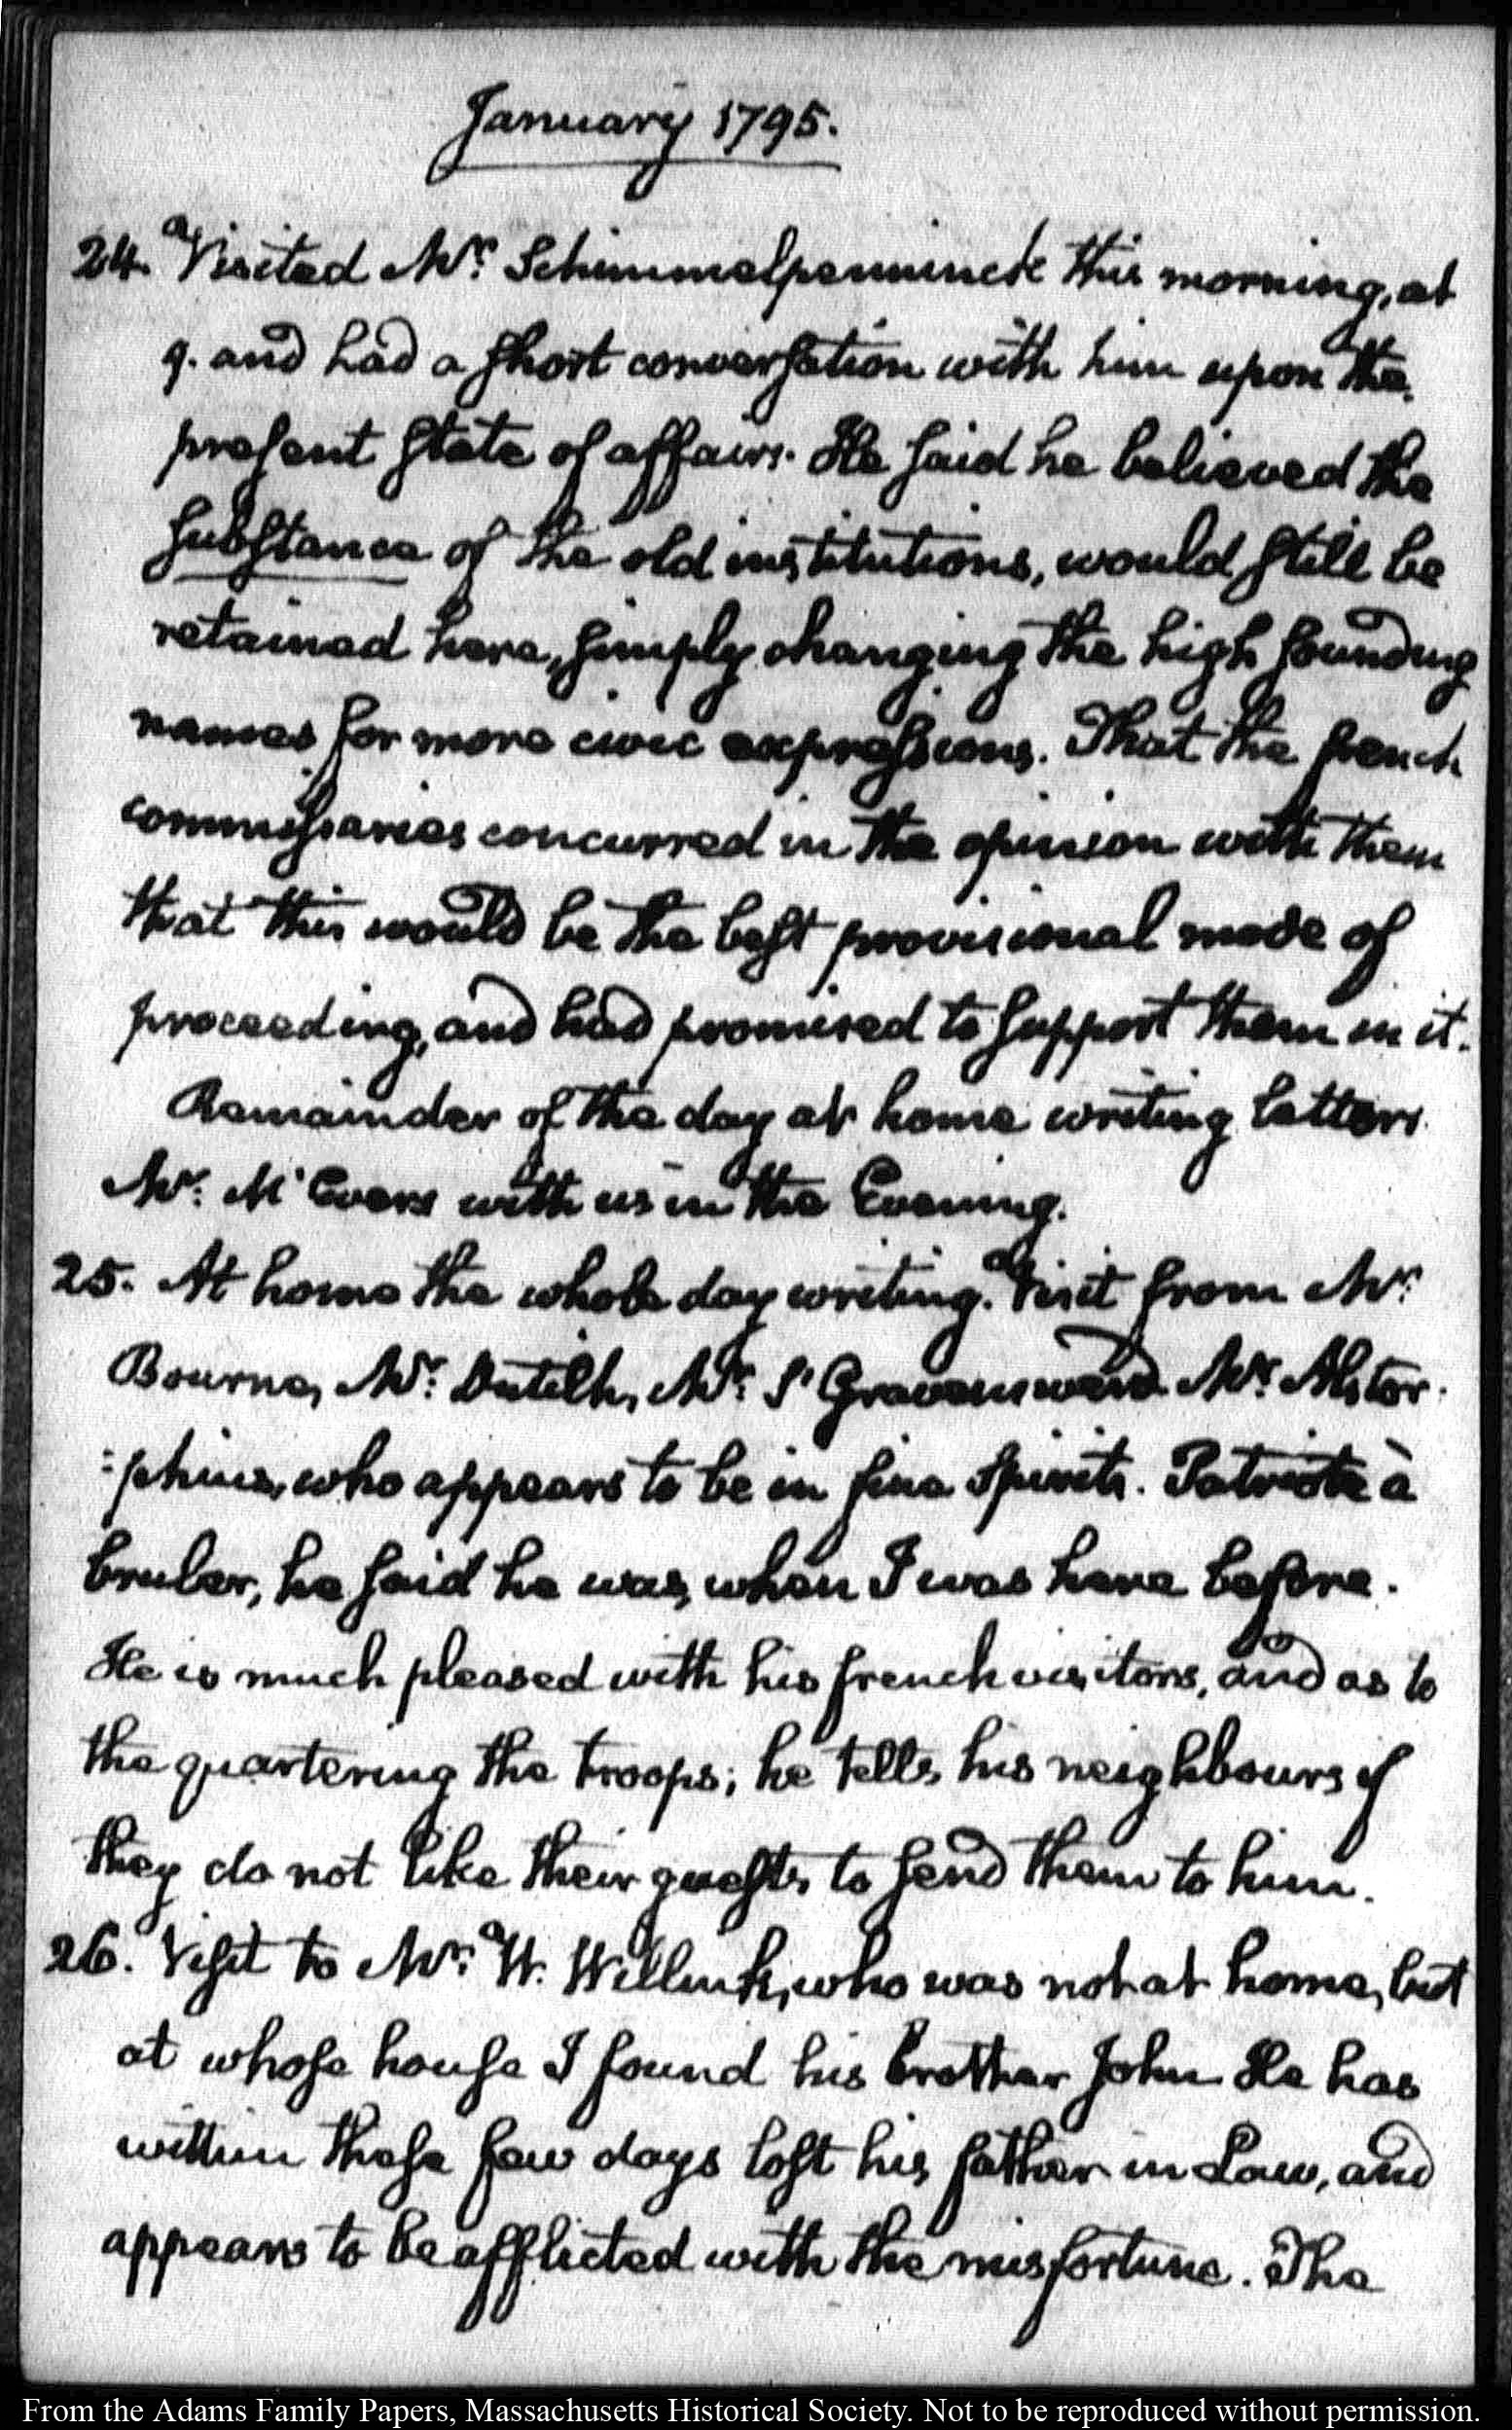 January 1795.
24. a Visited Mr. Schimmelpenninck this morning, at
9. and had a short conversation with him upon the
present state of affairs. He said he believed the
substance of the old institutions, would still be
retained here, simply changing the high sounding
names for more civic expressions. That the french
commissaries concurred in the opinion with them
that this would be the best provisional mode of
proceeding, and had promised to support them in it.
Remainder of the day at home writing letters.
Mr. McEvers with us in the Evening.
25. At home the whole day writing. a Visit from Mr.
Bourne, Mr. Dutilh, Mr. S'Gravenswaard. Mr. Alstor-
:phius, who appears to be in fine spirits. Patriote à
bruler, he said he was, when I was here before.
He is much pleased with his french visitors, and as to
the quartering the troops; he tells his neighbours if
they do not like their guests, to send them to him.
26. a Visit to Mr. W. Willink, who was not at home, but
at whose house I found his brother John He has
within these few days lost his father in Law, and
appears to be afflicted with the misfortune. The
From the Adams Family Papers, Massachusetts Historical Society. Not to be reproduced without permission.